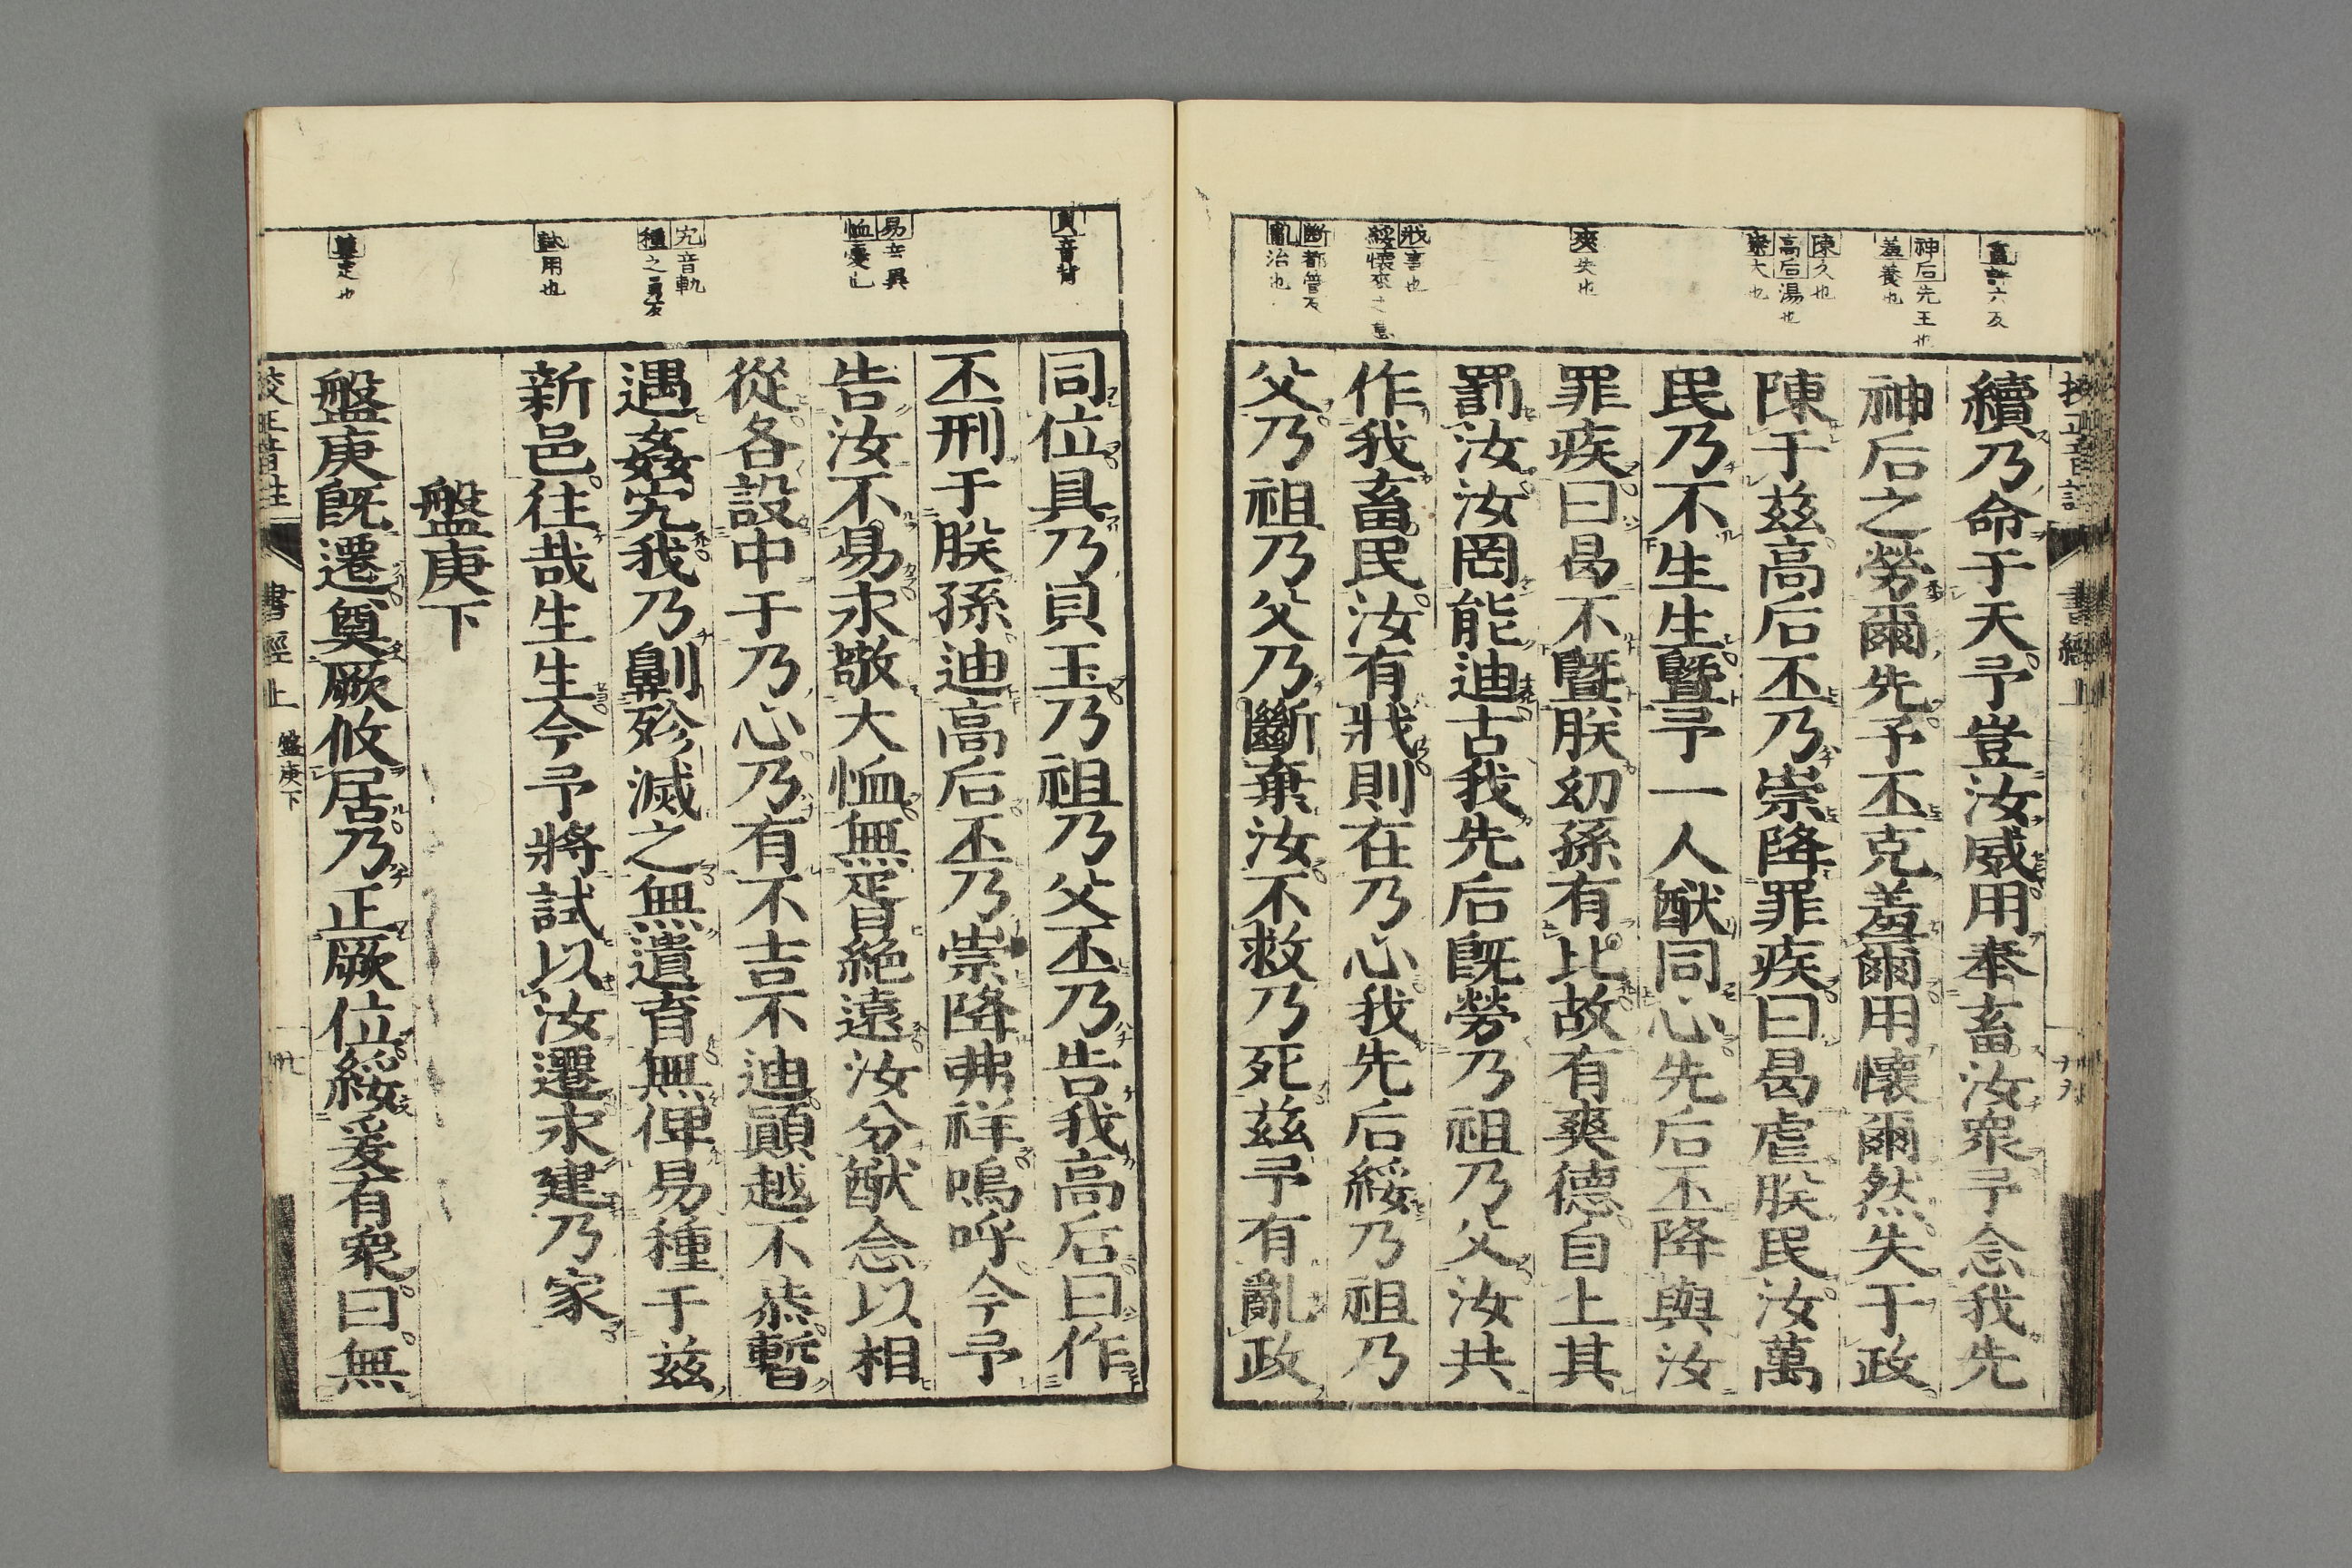 續乃命于天予豈汝威用奉畜汝衆予念我先
神后之勞爾先予丕克羞爾用懷爾然失于政
陳于茲高后丕乃崇降罪疾曰曷虐朕民汝萬
民乃不生生曁予一人猷同心先后丕降與汝
罪疾曰曷不曁朕幼孫有比故有爽德自上其
罰汝汝罔能迪古我先后旣勞乃祖乃父汝共
作我畜民汝有戕則在乃心我先后綏乃祖乃
父乃祖乃父乃斷棄汝不救乃死茲予有亂政
畜許六反
神后先王也
羞養也
陳久也
高后湯也
崇大也
爽失也
戕害也
斷都管反
亂治也
書經上
同位具乃貝玉乃祖乃父丕乃告我高后曰作
丕刑于朕孫迪高后丕乃崇降弗祥嗚呼今予
告汝不易永敬大恤無胥絶遠汝分猷念以相
從各設中于乃心乃有不吉不迪顚越不恭暫
遇姦宄我乃劓殄滅之無遺育無俾易種于茲
新邑往哉生生今予將試以汝遷永建乃家
盤庚下
盤庚旣遷奠厥攸居乃正厥位綏爰有衆曰無
貝音背
易音異
恤憂也
宄音軌
種之勇反
試用也
奠定也
校正音註
書經上
盤庚下